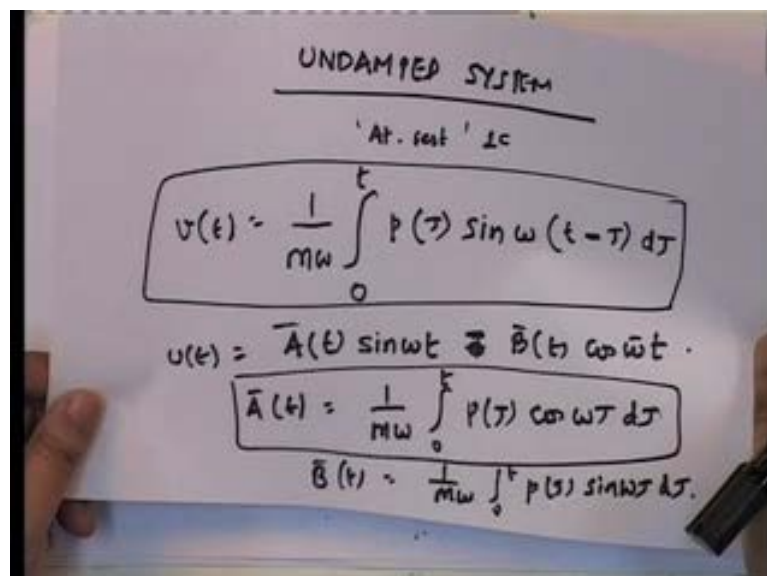 UNDAMPED SYSTEM
'At. rest' IC
v(t) = 1/mω ∫₀ᵗ p(τ) sin ω (t - τ) dτ
v(t) = Ā(t) sin ωt - B̄(t) cos ω̄t.
Ā(t) = 1/mω ∫₀ᵗ p(τ) cos ωτ dτ
B̄(t) = 1/mω ∫₀ᵗ p(τ) sin ωτ dτ.